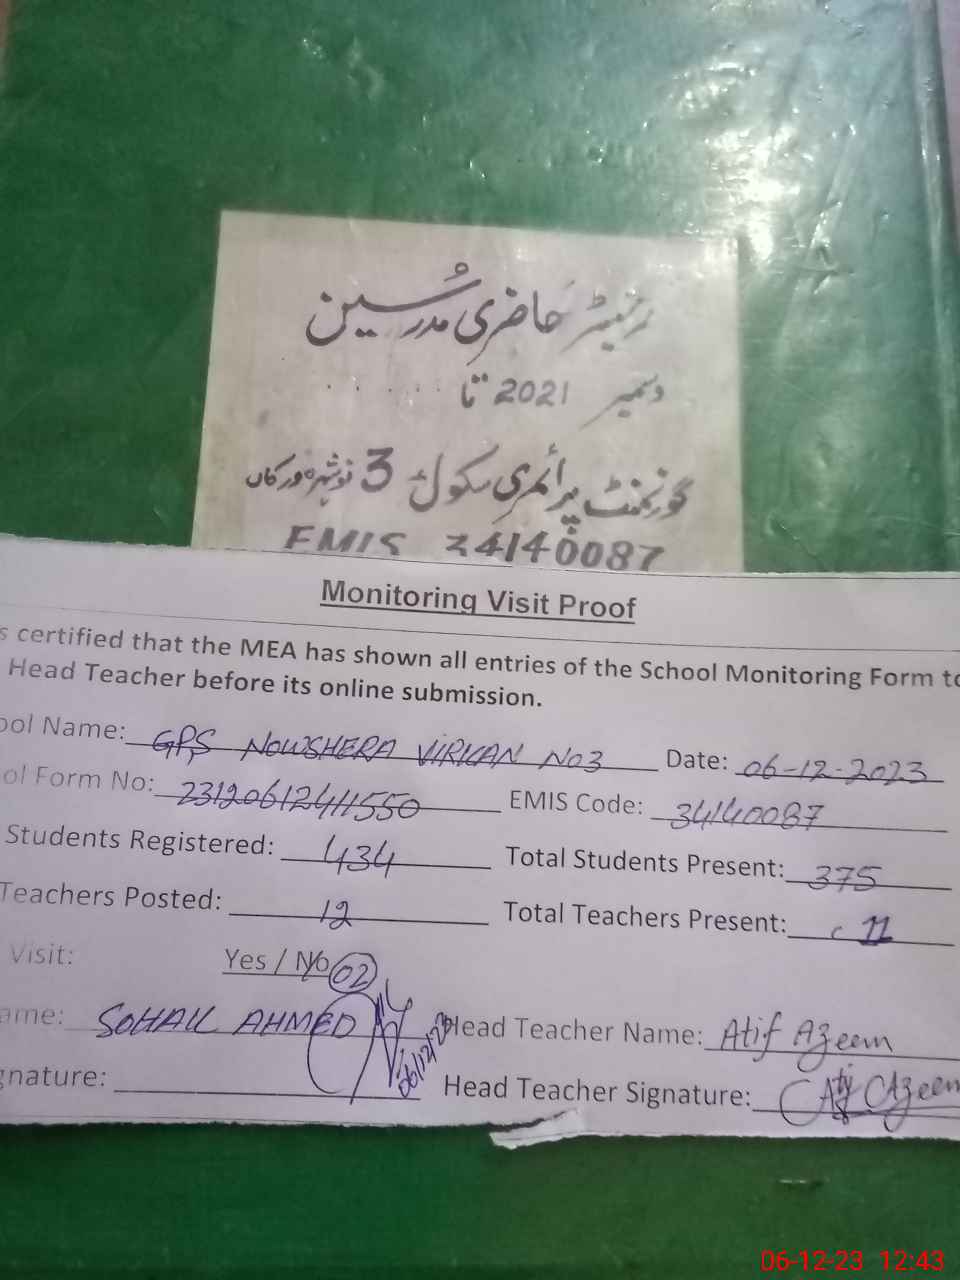 رجسٹر حاضری مدرسین
دسمبر 2021 تا . . . . . .
گورنمنٹ پرائمری سکول 3 نوشہرہ ورکاں
EMIS 34140087
Monitoring Visit Proof
s certified that the MEA has shown all entries of the School Monitoring Form to
Head Teacher before its online submission.
ool Name: GPS NOWSHERA VIRKAN No3 Date: 06-12-2023
ol Form No: 23120612411550 EMIS Code: 34140087
Students Registered: 434 Total Students Present: 375
Teachers Posted: 12 Total Teachers Present: 11
Visit: Yes / No 02
ame: SOHAIL AHMED Head Teacher Name: Atif Azeem
06/12/23
gnature: Head Teacher Signature: Atif Azeem
06-12-23 12:43